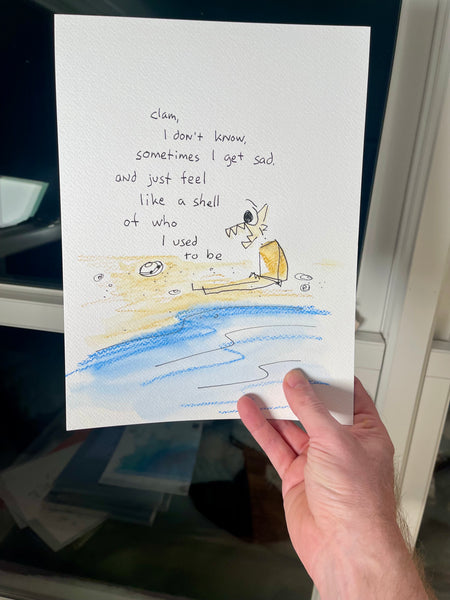 clam,
I don't know,
sometimes I get sad.
and just feel
like a shell
of who
I used
to be